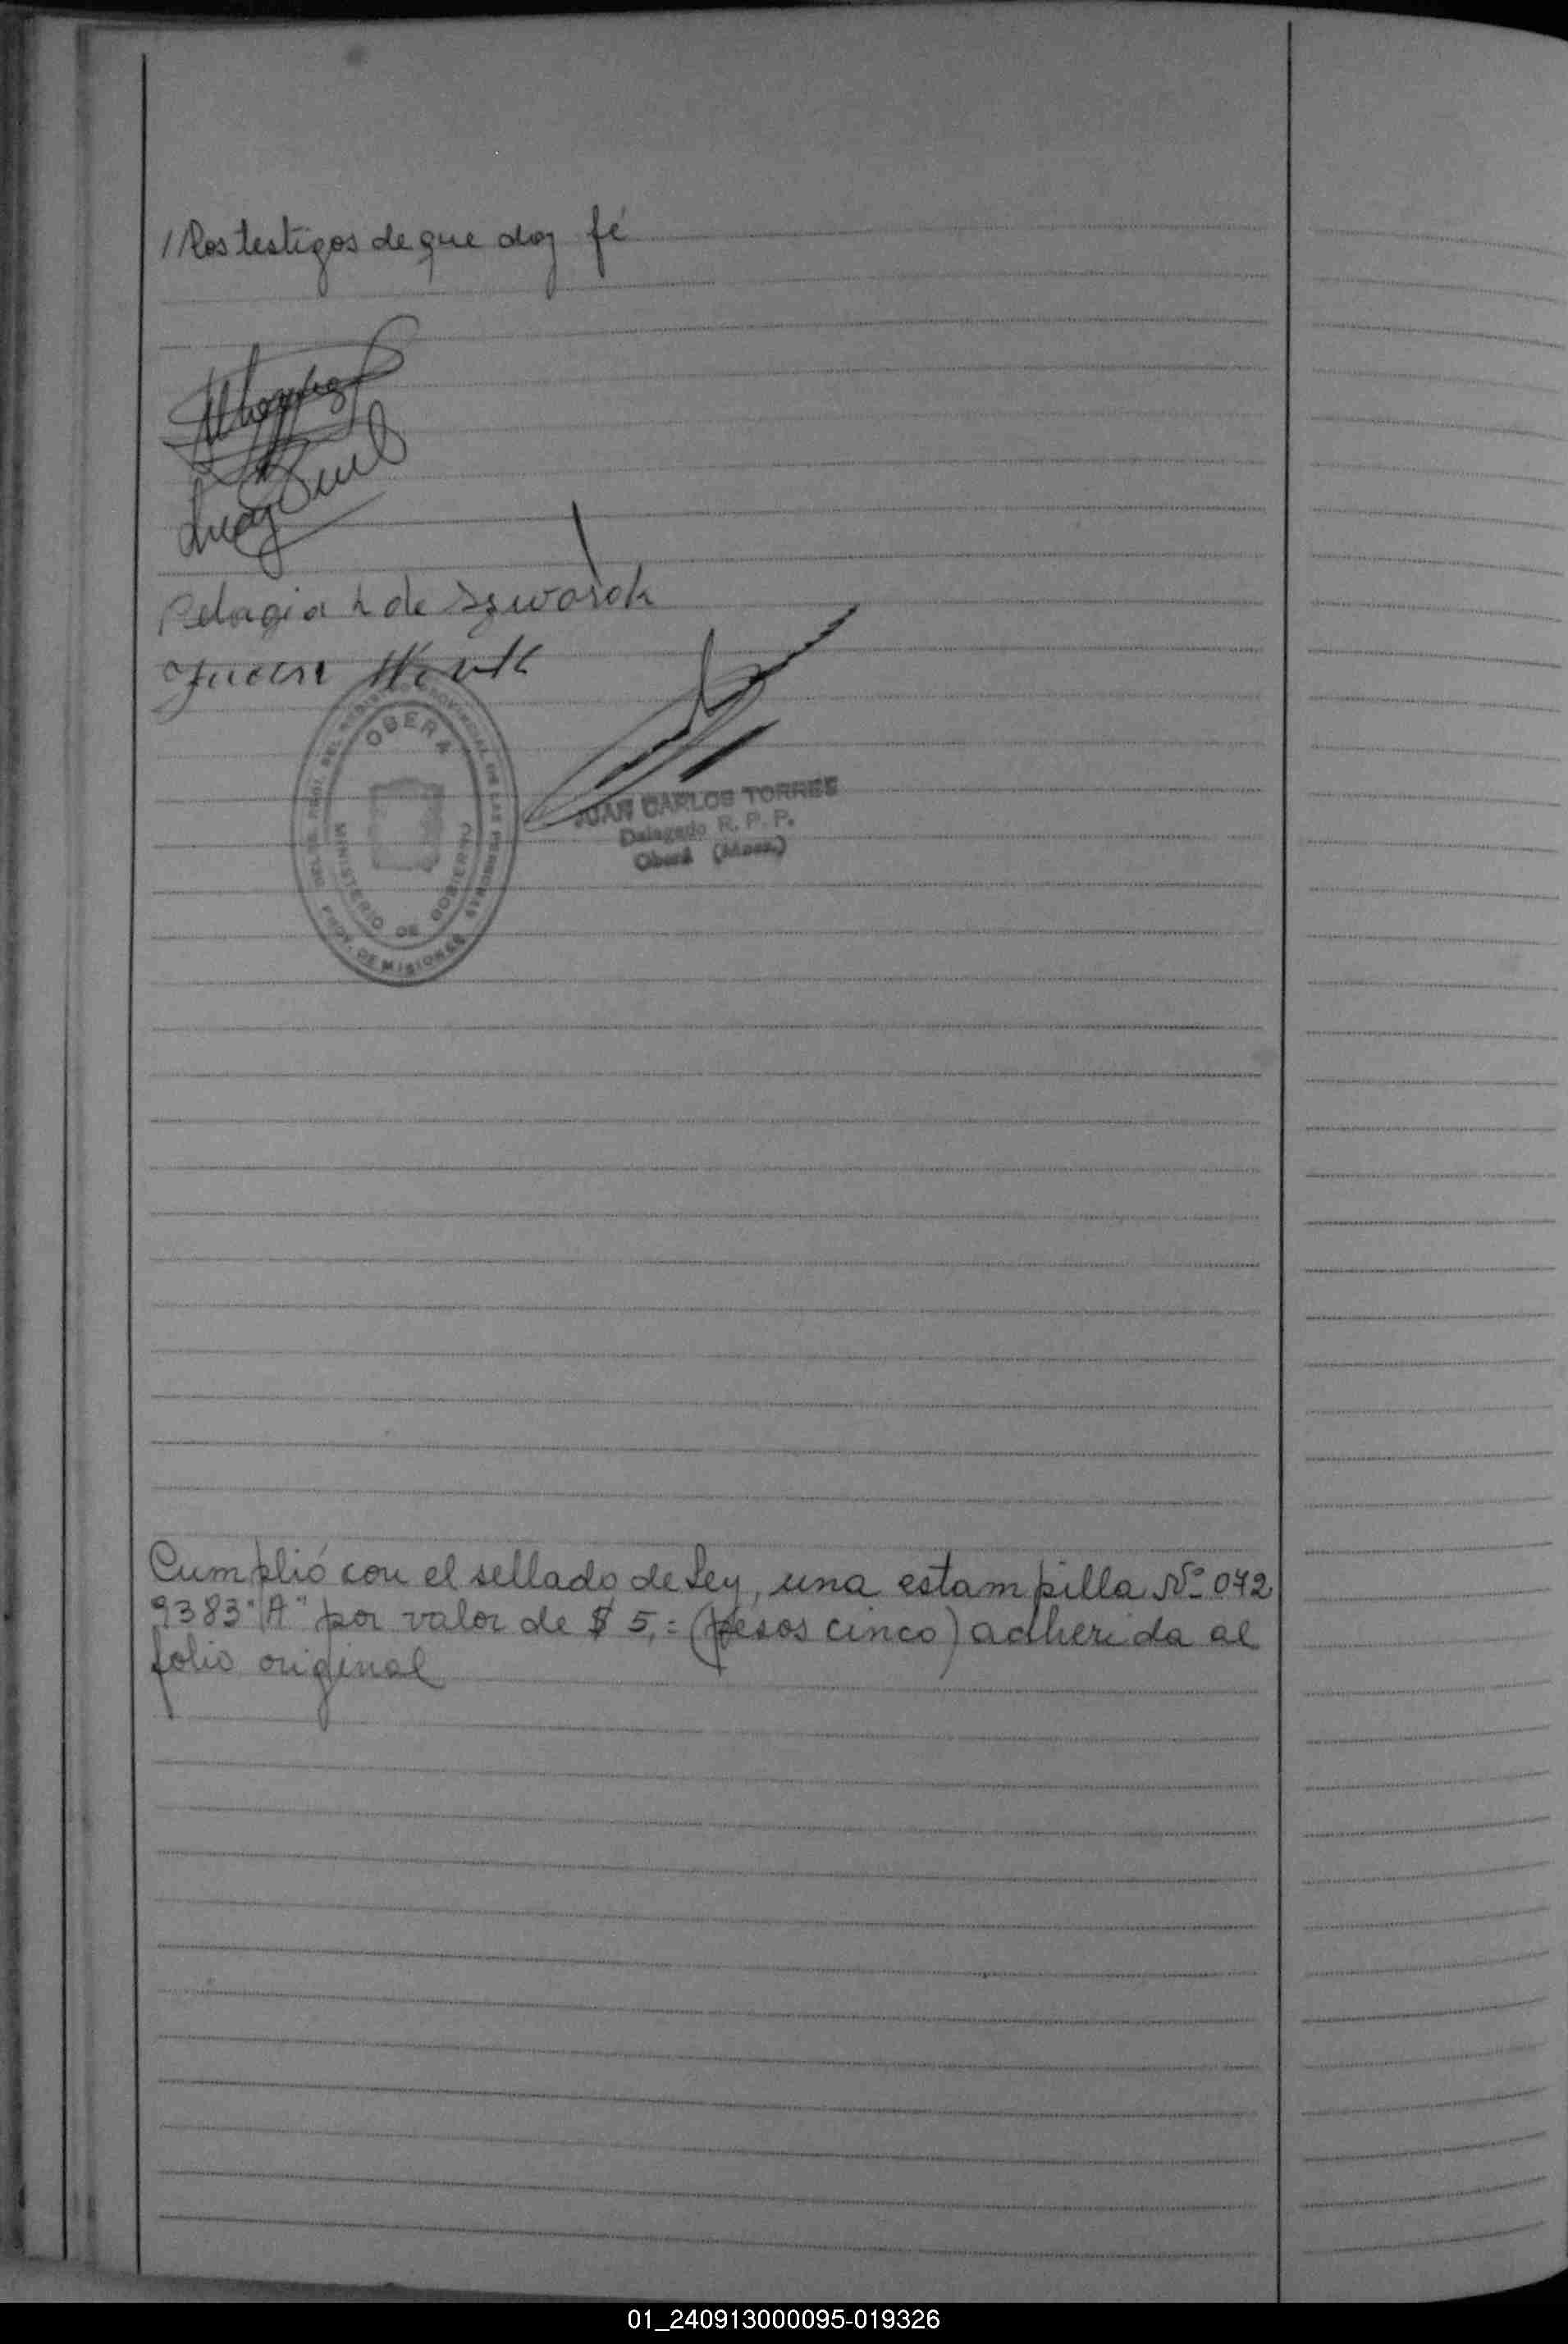 //los testigos de que doy fé
Pelagia L de Szwarok
Juan
OBERA
MINISTERIO DE GOBIERNO
PROV. DE MISIONES
JUAN CARLOS TORRES
Delegado R. P. P.
Oberá (Mnes.)
Cumplió con el sellado de Ley, una estampilla Nº 072
9383 "A" por valor de $ 5,= (pesos cinco) adherida al
folio original
01_240913000095-019326